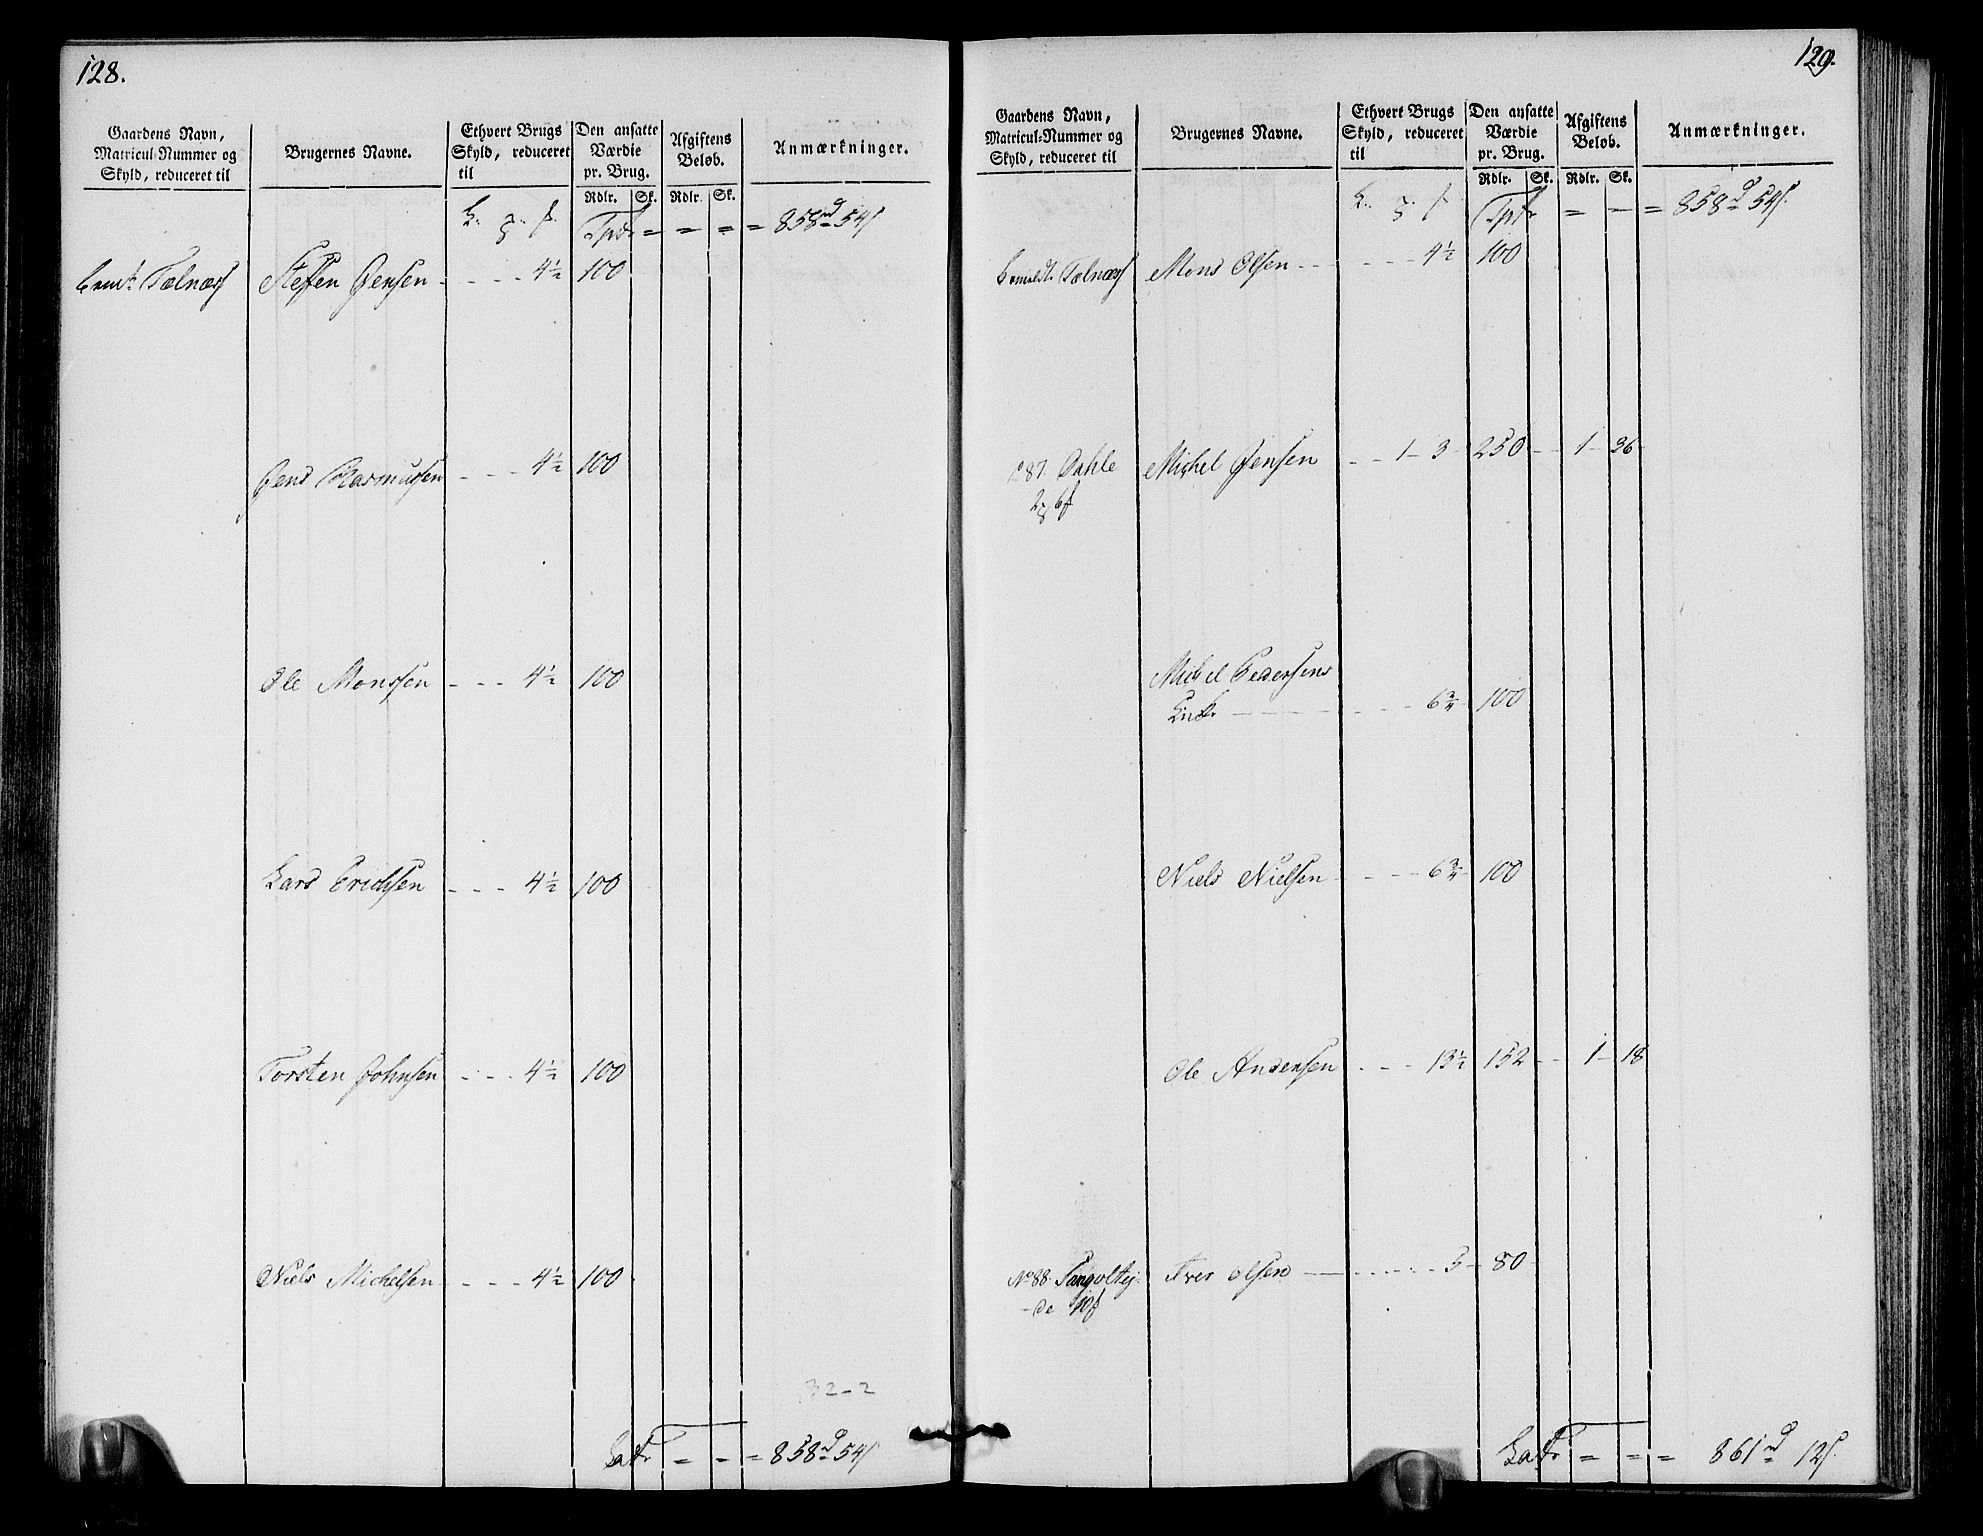 128.
Gaardens Navn,
Matricul-Nummer og
Skyld, reduceret til
Brugernes Navne.
Ethvert Brugs
Skyld, reduceret
til
Den ansatte
Værdie
pr. Brug.
Rdlr. Sk.
Afgiftens
Beløb.
Rdlr. Sk.
Anmærkninger.
Tpr = = = = 858 rd 54 s
Tælnæs Steffen Jensen - - - 4½ 100
Jens Rasmussen - - - 4½ 100
Ole Monssen - - - 4½ 100
Lars Erichsen - - - 4½ 100
Torsten Johnsen - - - 4½ 100
Niels Michelsen - - - 4½ 100
32-2
Latr = = = 858 rd 54 s
129.
Gaardens Navn,
Matricul-Nummer og
Skyld, reduceret til
Brugernes Navne.
Ethvert Brugs
Skyld, reduceret
til
Den ansatte
Værdie
pr. Brug.
Rdlr. Sk.
Afgiftens
Beløb.
Rdlr. Sk.
Anmærkninger.
Tpr = = = 858 rd 54 s.
Tælnæs Mons Olsen - - - 4½ 100
87. Dahle Michel Jensen - - 1 - 3 250 - - 1 - 36
Michel Pedersens
Enke - - - 6¾ 100
Niels Nielsen - - - 6¾ 100
Ole Andersen - - - 13½ 152 - - 1 - 18
No 88. Iver Olsen - - - 3 80
Latr = = = 861 rd 12 s.